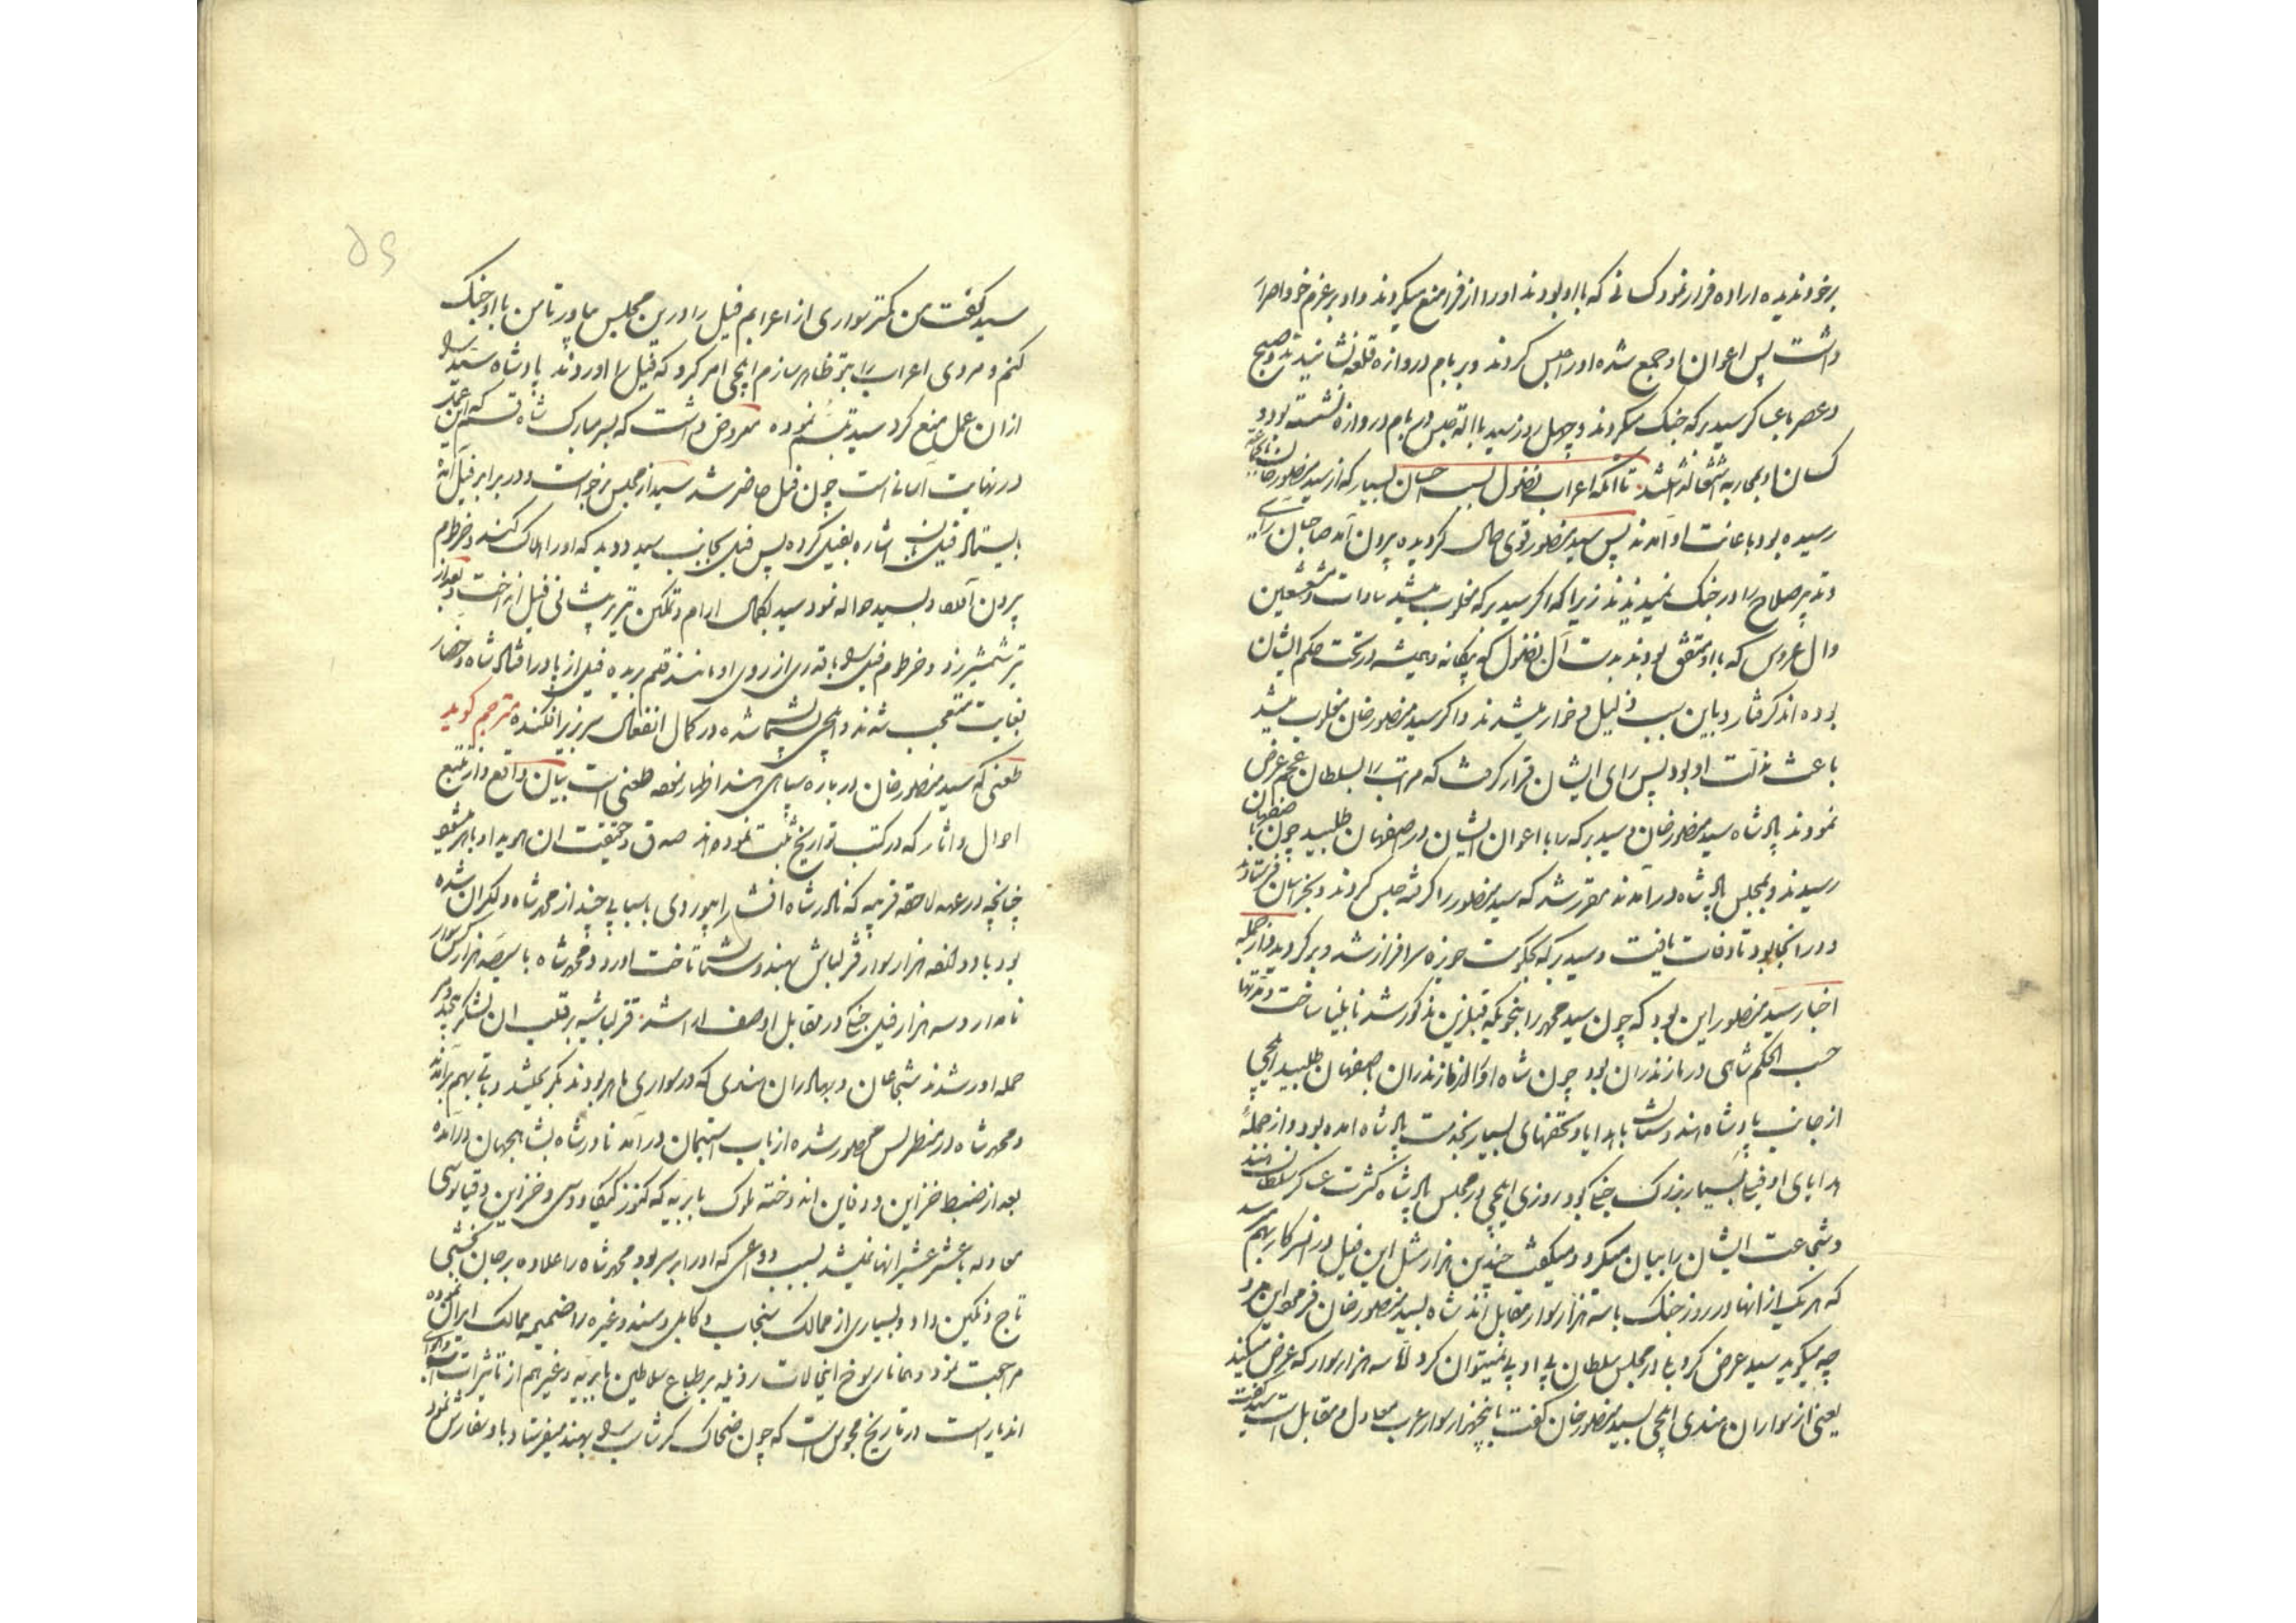 برخود ندیده اراده فرار نمود کسانی که با او بودند او را از فرار منع میکردند و او بر عزم خود اصرار
داشت پس اعوان او جمع شده او را حبس کردند و بر بام دروازه قلعه نشانیدند و صبح
و عصر با عساکر سید برکه جنگ میکردند و چهل روز سید با آلة حبس در بام دروازه نشسته بود و
کسان او بمحاربه اشتغال داشتند تا آنکه اعراب آل فضول بسبب احسان بسیار که از سید منصور خان بایشان
رسیده بود باعانت او آمدند پس سید منصور قوی حال گردیده بیرون آمد صاحبان رای
و تدبیر صلاح را در جنگ نمیدیدند زیرا که اگر سید برکه مغلوب میشد سادات مشعشعین
وال غروس که با او متفق بودند بدست آل فضول که بیگانه و همیشه در تحت حکم ایشان
بوده اند گرفتار و باین سبب ذلیل و خوار میشدند و اگر سید منصور خان مغلوب میشد
باعث مذلت او بود پس رای ایشان قرار گرفت که مراتب را بسلطان عجم عرض
نمودند پادشاه سید منصور خان و سید برکه را با اعوان ایشان در اصفهان طلبید چون باصفهان
رسیدند و بمجلس پادشاه درآمدند مقرر شد که سید منصور را گرفته حبس کردند و بخراسان فرستادند
و در آنجا بود تا وفات یافت و سید برکه بحکومت حویزه سرافراز شد و برگردید و از جمله
اخبار سید منصور این بود که چون سید محمد را بنحویکه قبل ازین مذکور شد نابینا ساخت و مدتها
حسب الحکم شاهی در مازندران بود چون شاه او را از مازندران باصفهان طلبید ایلچی
از جانب پادشاه هندوستان با هدایا و تحفهای بسیار بخدمت پادشاه آمده بود و از جمله
هدایای او فیل بسیار بزرگ جنگی بود روزی ایلچی در مجلس پادشاه کثرت عساکر سلطان هند
و شجاعت ایشان را بیان میکرد و میگفت چندین هزار مثل این فیل در سرکار بهم میرسد
که هر یک از انها در روز جنگ با سه هزار سوار مقابل اند شاه بسید منصور خان فرمود این مرد
چه میگوید سید عرض کرد که در مجلس سلطان بی ادبی نمیتوان کرد اما سه هزار سوار که عرض میکند
یعنی از سواران هندی ایلچی بسید منصور خان گفت با پنجهزار سوار عرب معادل و مقابل است سید گفت
۵۶
سید گفت من کمتر سواری از اعرابم فیل را درین مجلس بیاور تا من با او جنگ
کنم و مردی اعراب را بتو ظاهر سازم ایلچی امر کرد که فیل را آوردند پادشاه سید را
ازان عمل منع کرد سید تبسم نموده معروض داشت که بسر مبارک شاه قسم که این عمل
در نهایت آسانی است چون فیل حاضر شد سید از مجلس برخواست و در برابر فیل ایستاد
فیلبان اشاره بفیل کرده پس فیل بجانب سید دوید که او را هلاک کند و خرطوم
بیرون آورد و بسید حواله نمود سید بکمال آرام و تمکین تیری به پیشانی فیل انداخت و بعد از
تیر شمشیر زد و خرطوم فیل را با قدری از روی او مانند قلم بریده فیل از پا درافتاد شاه و حضار
بغایت متعجب شدند و ایلچی پشیمان شده در کمال انفعال سر بزیر افکنده مترجم گوید
طعنی که سید منصور خان درباره سپاهی هند اظهار نموده طعنی است بیان واقع و از تتبع
احوال و آثار که در کتب تواریخ ثبت نموده اند صدق و حقیقت آن هویدا و باهر میشود
چنانچه در عهد لاحقه قریبه که نادرشاه افشار ابیوردی با سبابی چند از محمدشاه دلگران شده
بود با دوازده هزار سوار قزلباش بهندوستان تاخت آورد و محمد شاه با سیصد هزار سوار
نامدار و سه هزار فیل جنگی در مقابل او صف آرا شد قزلباشیه بر قلب آن لشکر بیحد و مر
حمله آور شدند شجاعان و بهادران هندی که در سواری ماهر بودند
و محمد شاه در محصور شده از باب استیمان درآمد نادرشاه بشاهجهان درآمده
بعد از ضبط خزاین و دفاین اندوخته ملوک بابریه که کنوز کیکاووسی و خزاین دقیانوسی
معادله با عشر عشیر آنها نمیشد بسبب دواعی که او را بر سر بود محمد شاه را علاوه بر جان بخشی
تاج و نگین داد و بسیاری از ممالک پنجاب و کابل و سند و غیره را ضمیمه ممالک ایران نموده
مراجعت نمود و همانا رسوخ اینحالات رذیله بر طباع سلاطین بابریه و غیرهم از تاثیرات آب و هوای
اندیار است در تاریخ مجوس است که چون ضحاک گرشاسب را بهند میفرستاد باو سفارش نمود